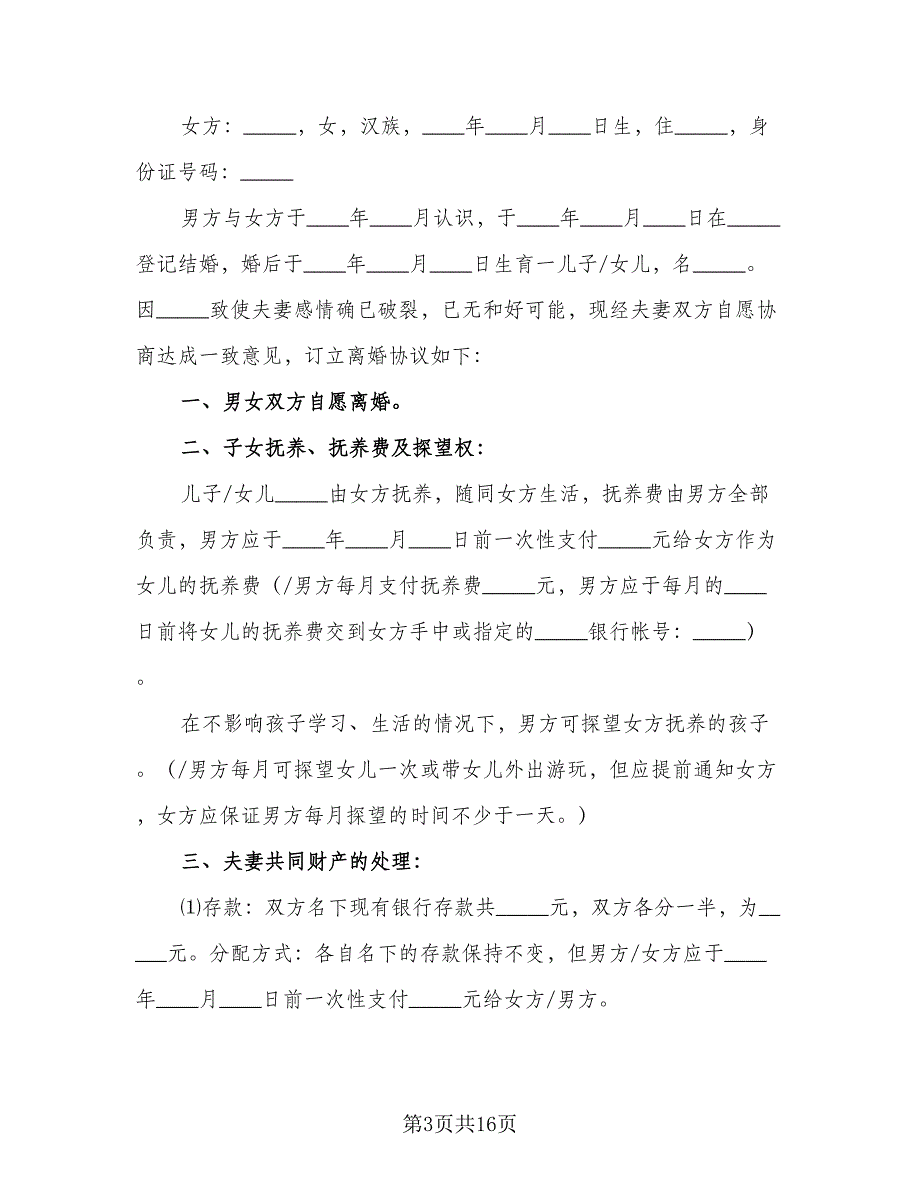 女方：_____，女，汉族，____年____月____日生，住_____，身
份证号码：_____
男方与女方于____年____月认识，于____年____月____日在_____
登记结婚，婚后于____年____月____日生育一儿子/女儿，名_____。
因_____致使夫妻感情确已破裂，已无和好可能，现经夫妻双方自愿协
商达成一致意见，订立离婚协议如下：
一、男女双方自愿离婚。
二、子女抚养、抚养费及探望权：
儿子/女儿_____由女方抚养，随同女方生活，抚养费由男方全部
负责，男方应于____年____月____日前一次性支付_____元给女方作为
女儿的抚养费（/男方每月支付抚养费_____元，男方应于每月的____
日前将女儿的抚养费交到女方手中或指定的_____银行帐号：_____）
。
在不影响孩子学习、生活的情况下，男方可探望女方抚养的孩子
。（/男方每月可探望女儿一次或带女儿外出游玩，但应提前通知女方
，女方应保证男方每月探望的时间不少于一天。）
三、夫妻共同财产的处理：
⑴存款：双方名下现有银行存款共_____元，双方各分一半，为__
___元。分配方式：各自名下的存款保持不变，但男方/女方应于____
年____月____日前一次性支付_____元给女方/男方。
第3页共16页